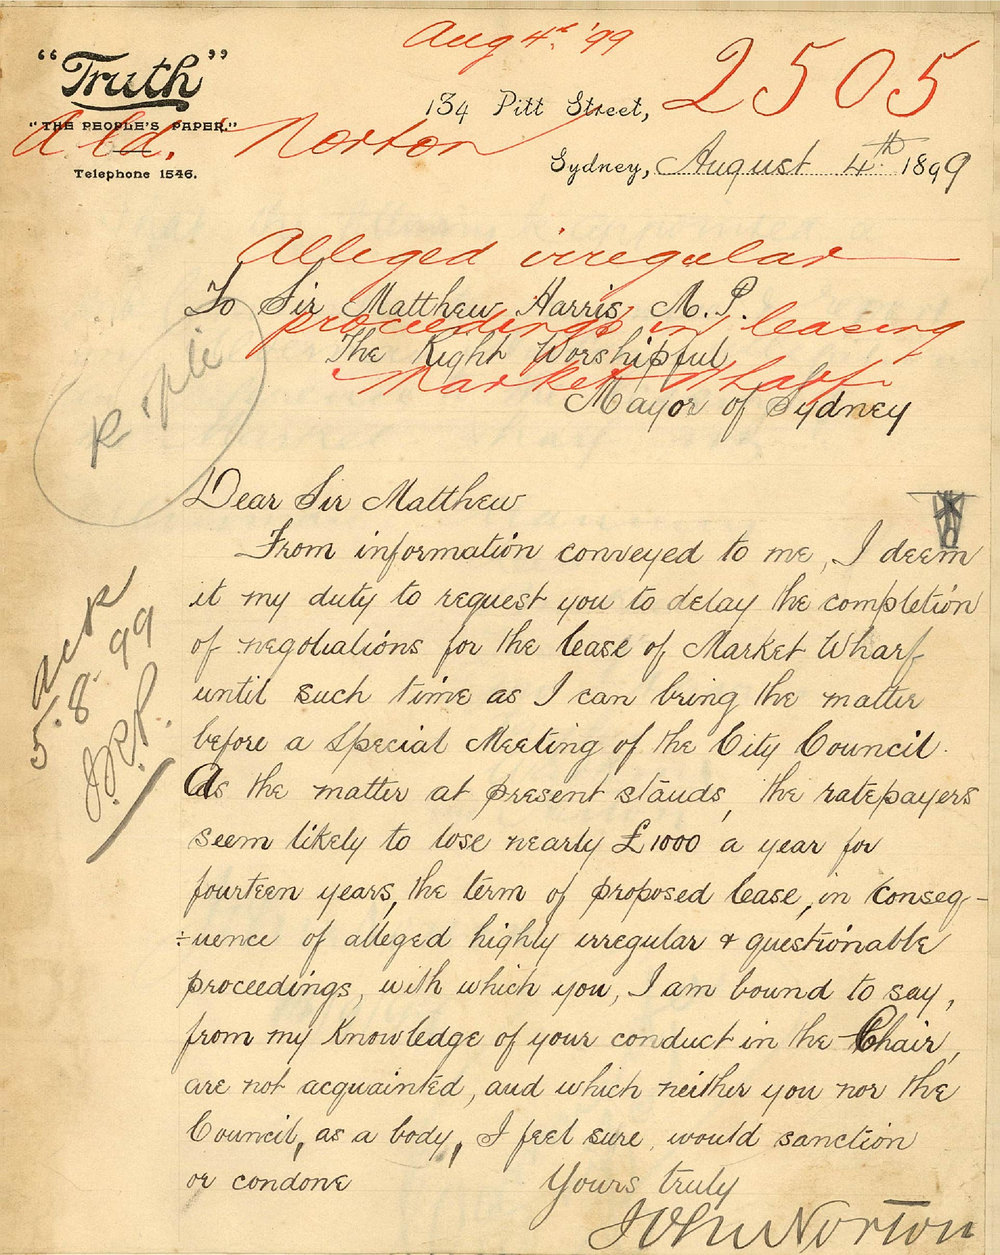 Aug 4th '99
2505
"Truth"
"THE PEOPLE'S PAPER."
Ald. Norton
Telephone 1546.
134 Pitt Street,
Sydney, August 4th 1899
Alleged irregular
proceedings in leasing
Market Wharf
To Sir Matthew Harris M.P.
The Right Worshipful
Mayor of Sydney
Dear Sir Matthew
From information conveyed to me, I deem
it my duty to request you to delay the completion
of negotiations for the lease of Market Wharf
until such time as I can bring the matter
before a Special Meeting of the City Council.
As the matter at present stands, the ratepayers
seem likely to lose nearly £1000 a year for
fourteen years, the term of proposed lease, in conseq-
-uence of alleged highly irregular & questionable
proceedings, with which you, I am bound to say,
from my knowledge of your conduct in the Chair,
are not acquainted, and which neither you nor the
Council, as a body, I feel sure, would sanction
or condone
Yours truly
John Norton
ack
5.8.99